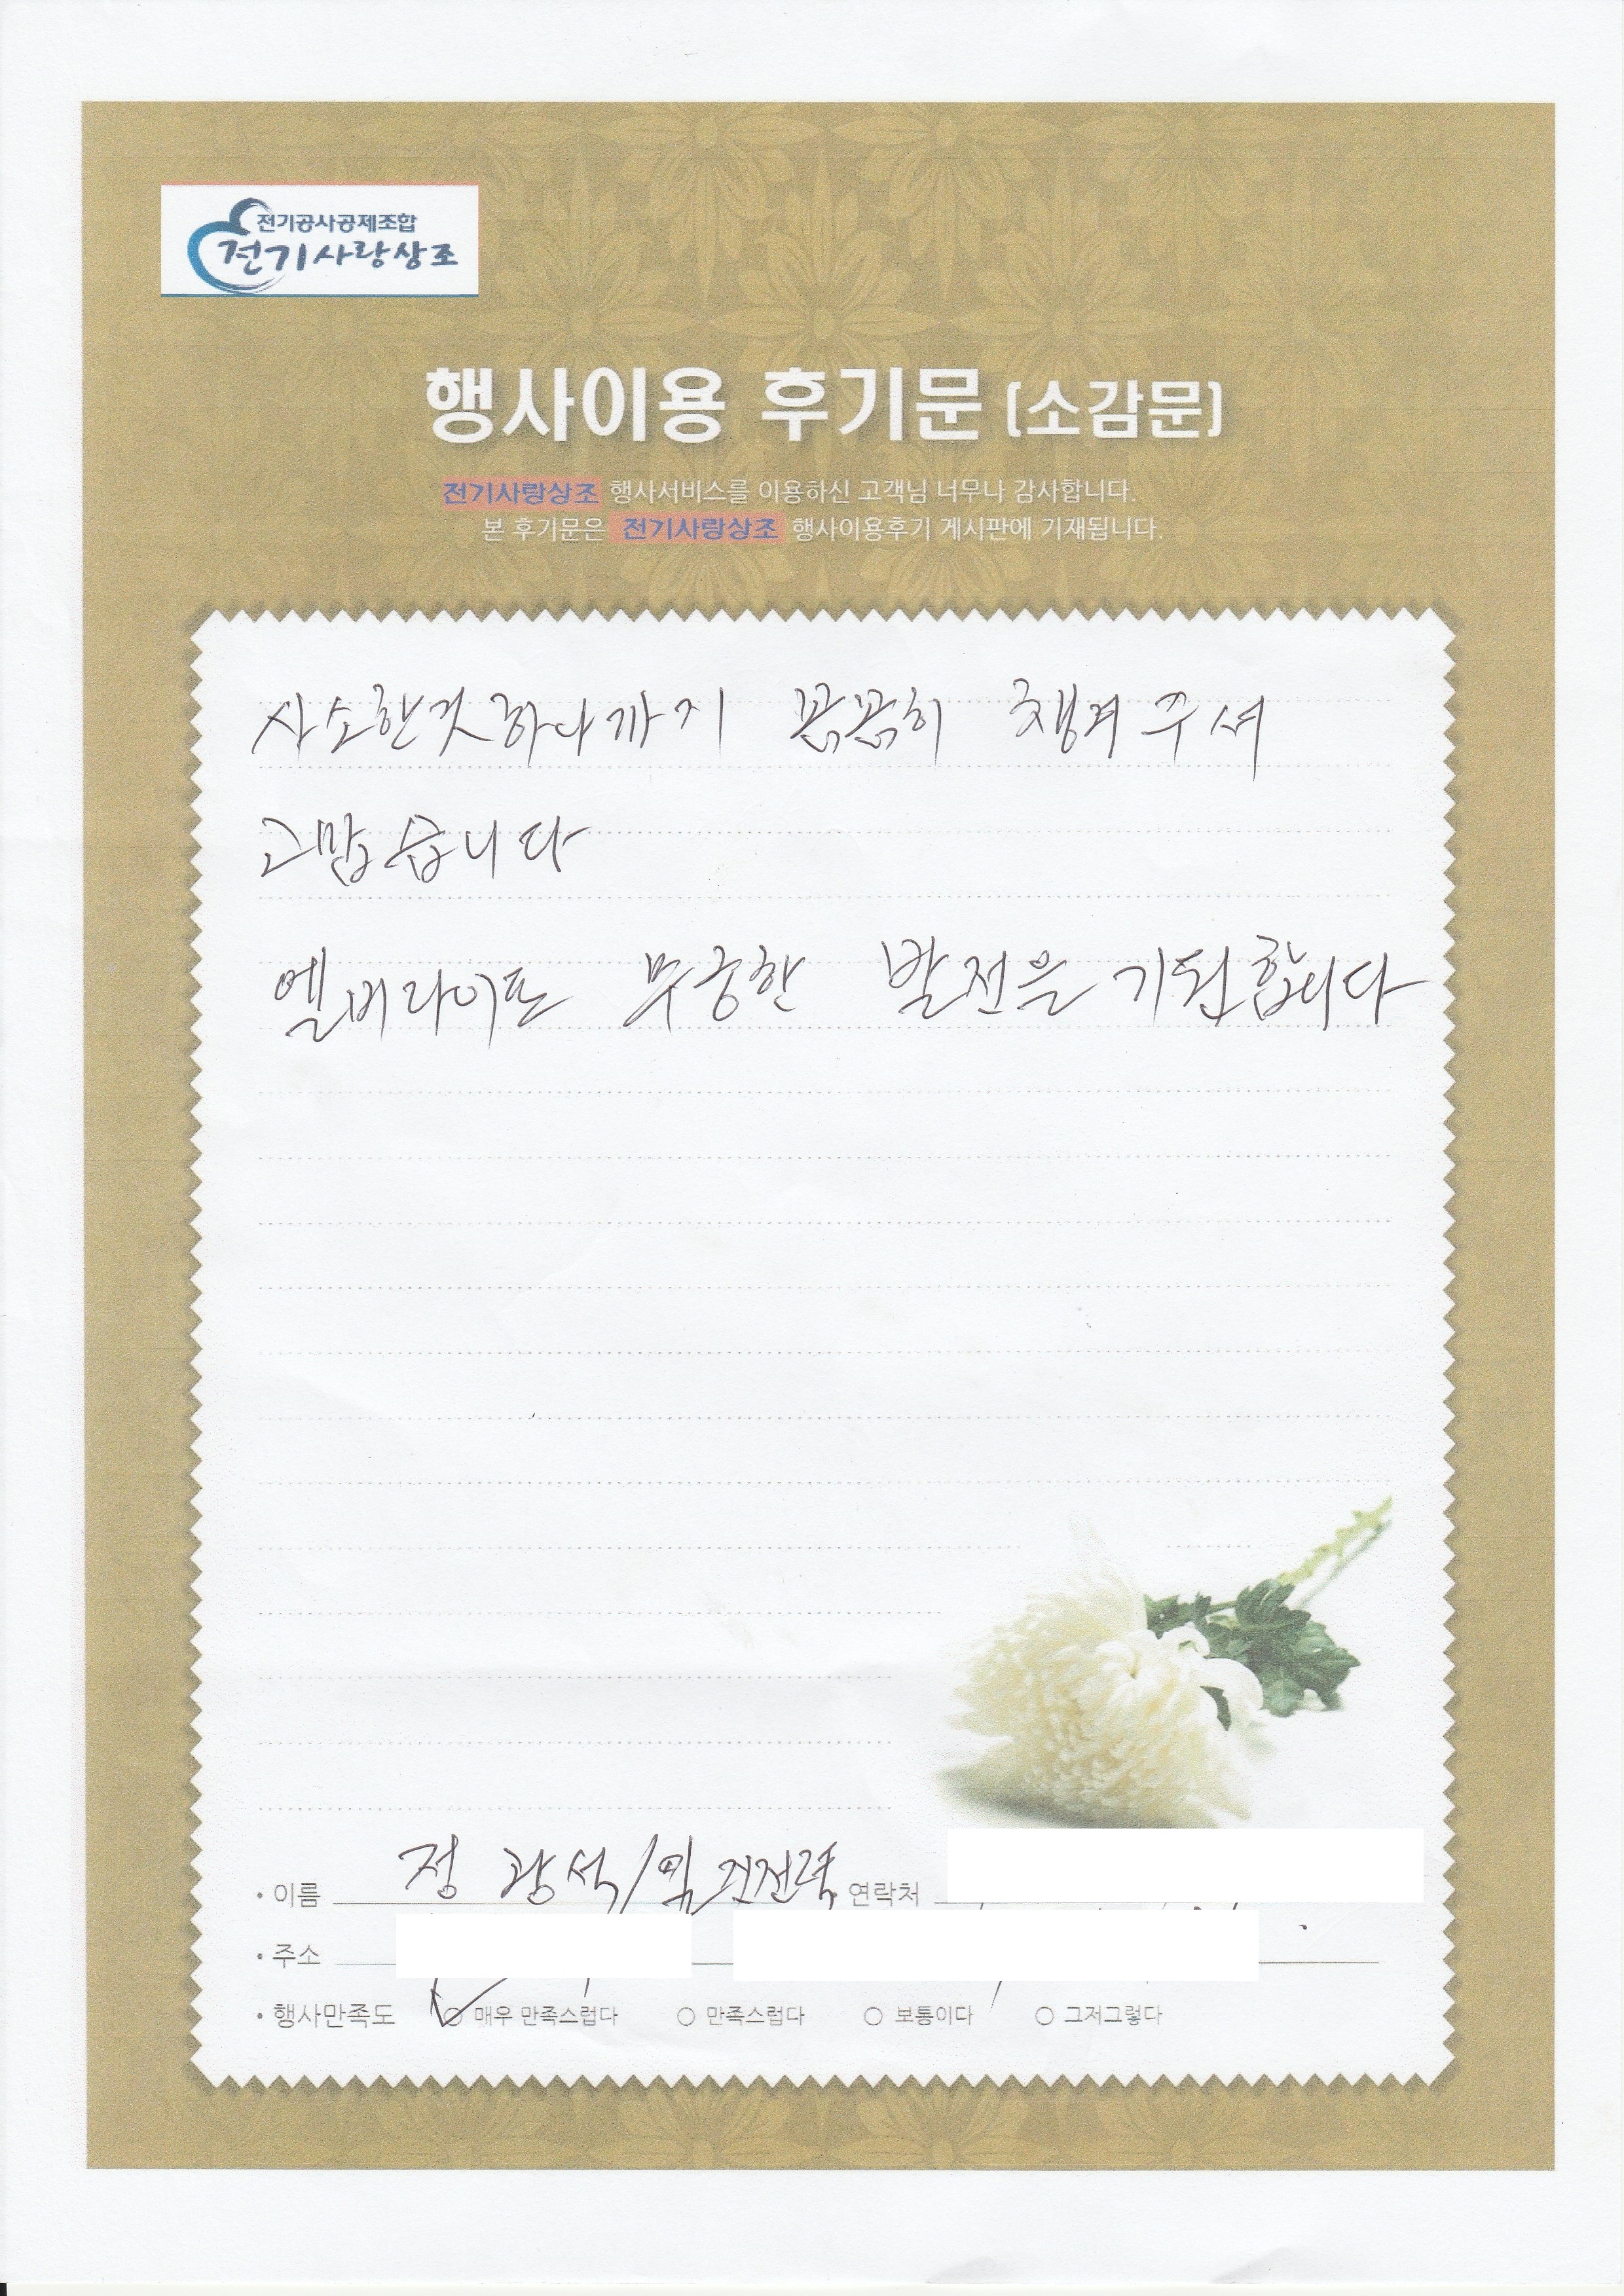 전기공사공제조합
전기사랑상조
행사이용 후기문 (소감문)
전기사랑상조 행사서비스를 이용하신 고객님 너무나 감사합니다.
본 후기문은 전기사랑상조 행사이용후기 게시판에 기재됩니다.
사소한것 하나까지 꼼꼼히 챙겨주셔
고맙습니다
엘비라이프 무궁한 발전을 기원합니다
• 이름 정 광석/ 연락처
• 주소
• 행사만족도 ○ 매우 만족스럽다 ○ 만족스럽다 ○ 보통이다 ○ 그저그렇다